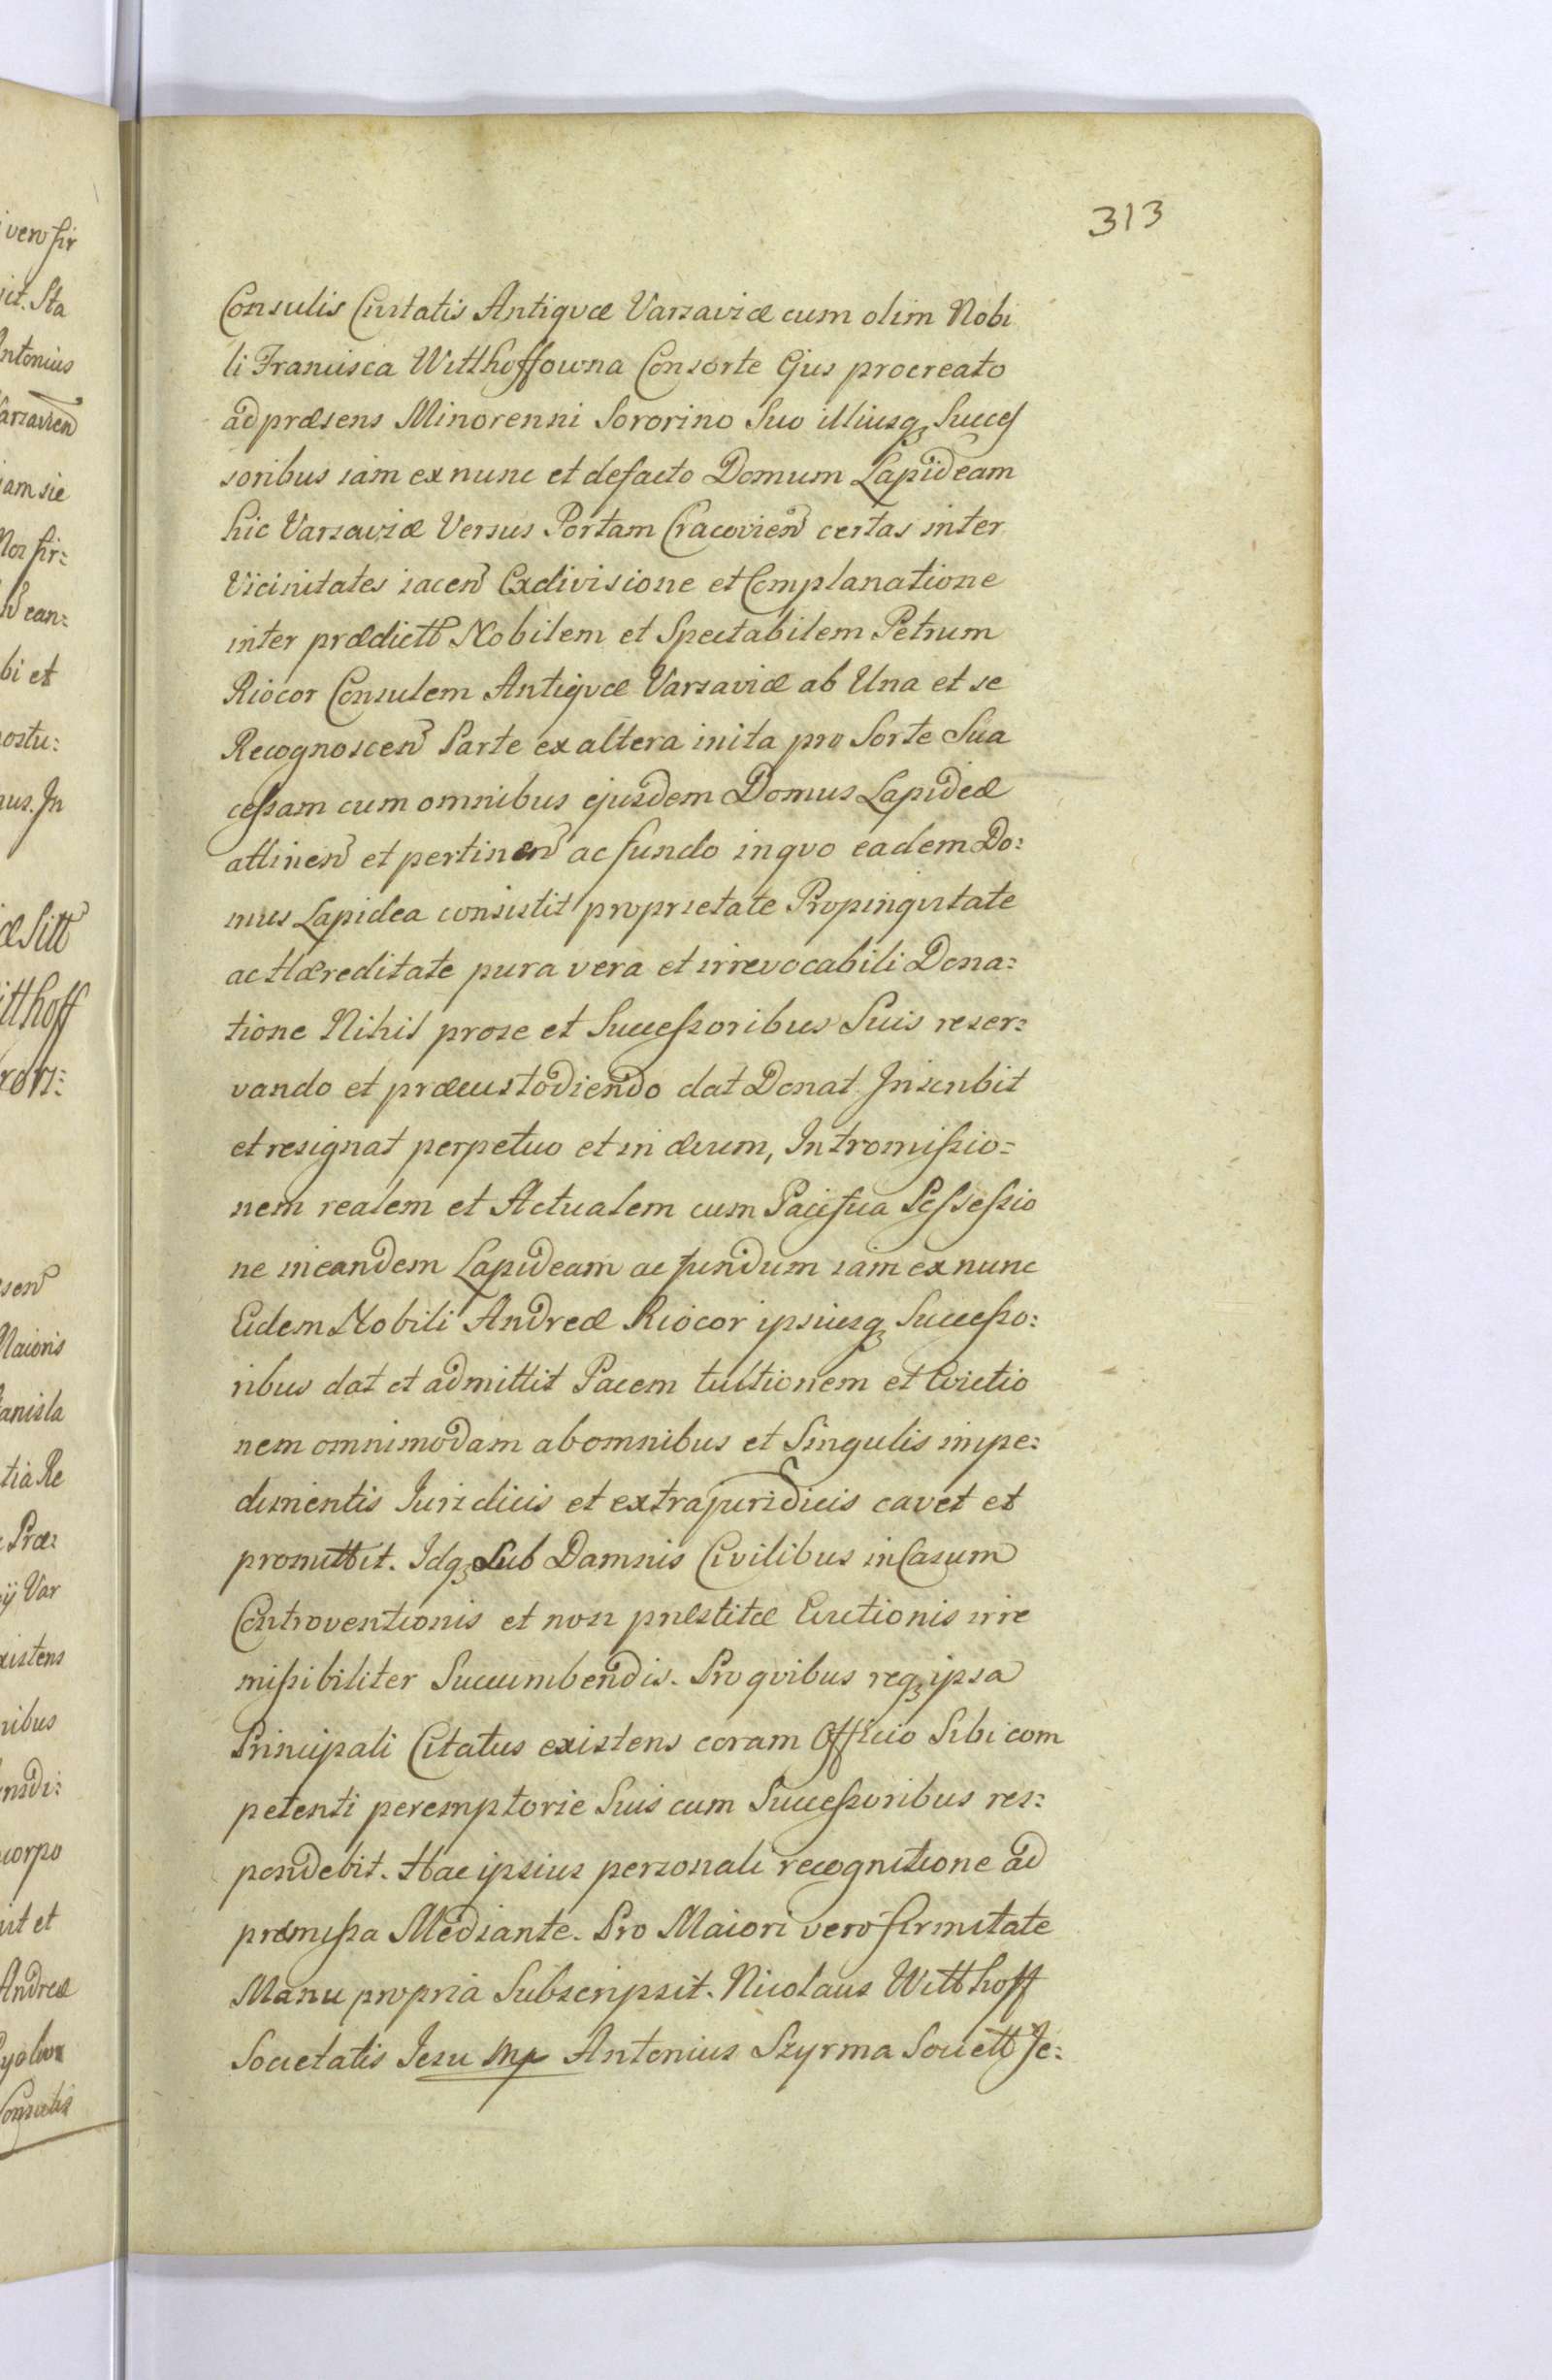 313
Consulis Civitatis Antiquæ Varsaviæ cum olim Nobi
li Francisca Witthoffowna Consorte Ejus procreato
ad præsens Minorenni Sororino Suo illiusq₃ Succes
soribus iam ex nunc et defacto Domum Lapideam
hic Varsaviæ Versus Portam Cracovien certas inter
Vicinitates iacen Exdivisione et Complanatione
inter prædictt Nobilem et Spectabilem Petrum
Riocor Consulem Antiquæ Varsaviæ ab Una et se
Recognoscen Parte ex altera inita pro Sorte Sua
cessam cum omnibus ejusdem Domus Lapideæ
attinen et pertinen ac fundo inquo eadem Do:
mus Lapidea consistit proprietate Propinquitate
ac Hæreditate pura vera et irrevocabili Dona:
tione Nihil prose et Successoribus Suis reser:
vando et præcustodiendo dat Donat Inscribit
et resignat perpetuo et in ævum, Intromissio=
nem realem et Actualem cum Pacifica Possessio
ne ineandem Lapideam ac fundum iam ex nunc
Eidem Nobili Andreæ Riocor ipsiusq₃ Successo:
ribus dat et admittit Pacem tuitionem et Evictio
nem omnimodam ab omnibus et Singulis impe:
dimentis Juridicis et extrajuridicis cavet et
promittit. Idq₃ Sub Damnis Civilibus in Casum
Controventionis et non præstitæ Evictionis irre
missibiliter Succumbendis. Pro quibus req₃ ipsa
Principali Citatus existens coram Officio Sibi com
petenti peremptorie Suis cum Successoribus res:
pondebit. Hac ipsius personali recognitione ad
præmissa Mediante. Pro Maiori vero firmitate
Manu propria Subscripsit. Nicolaus Witthoff
Societatis Jesu Mp Antonius Szyrma Societt Je: